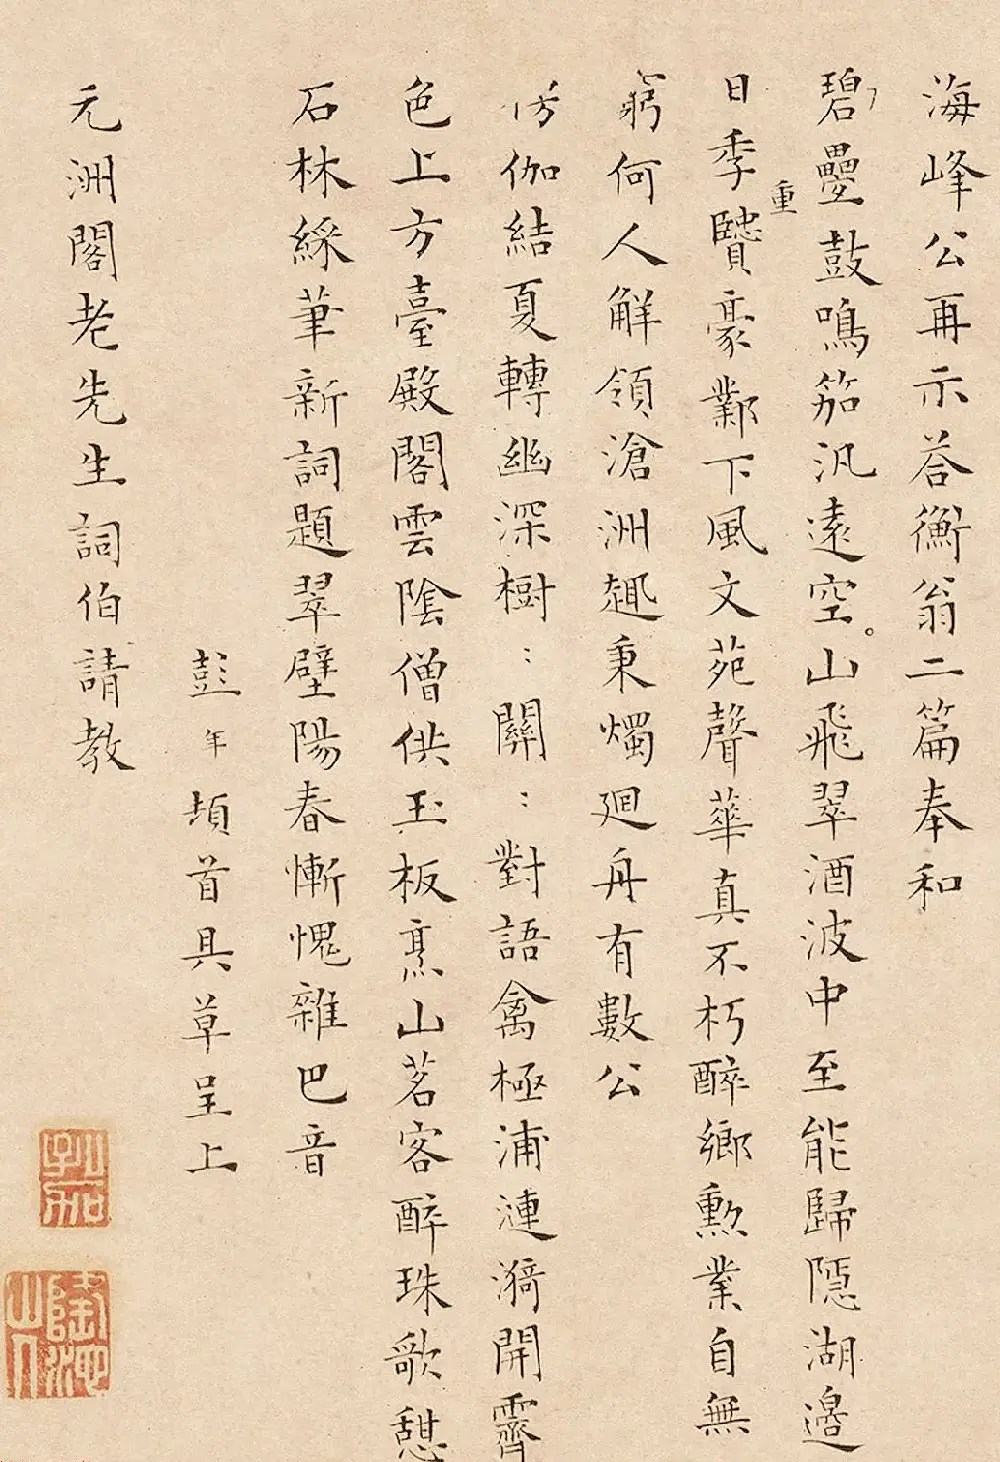 海峰公再示荅衡翁二篇奉和
碧疊鼓鳴笳汎遠空山飛翠酒波中至能歸隱湖邊
日季豪鄴下風文苑聲華真不朽醉鄉勲業自無
重
窮何人解領滄洲趣秉燭廻舟有數公
伽結夏轉幽深樹:關:對語禽極浦漣漪開霽
色上方臺殿閣雲陰僧供玉板烹山茗客醉珠歌憇
石林綵筆新詞題翠壁陽春慚愧雜巴音
彭年頓首具草呈上
元洲閣老先生詞伯請教